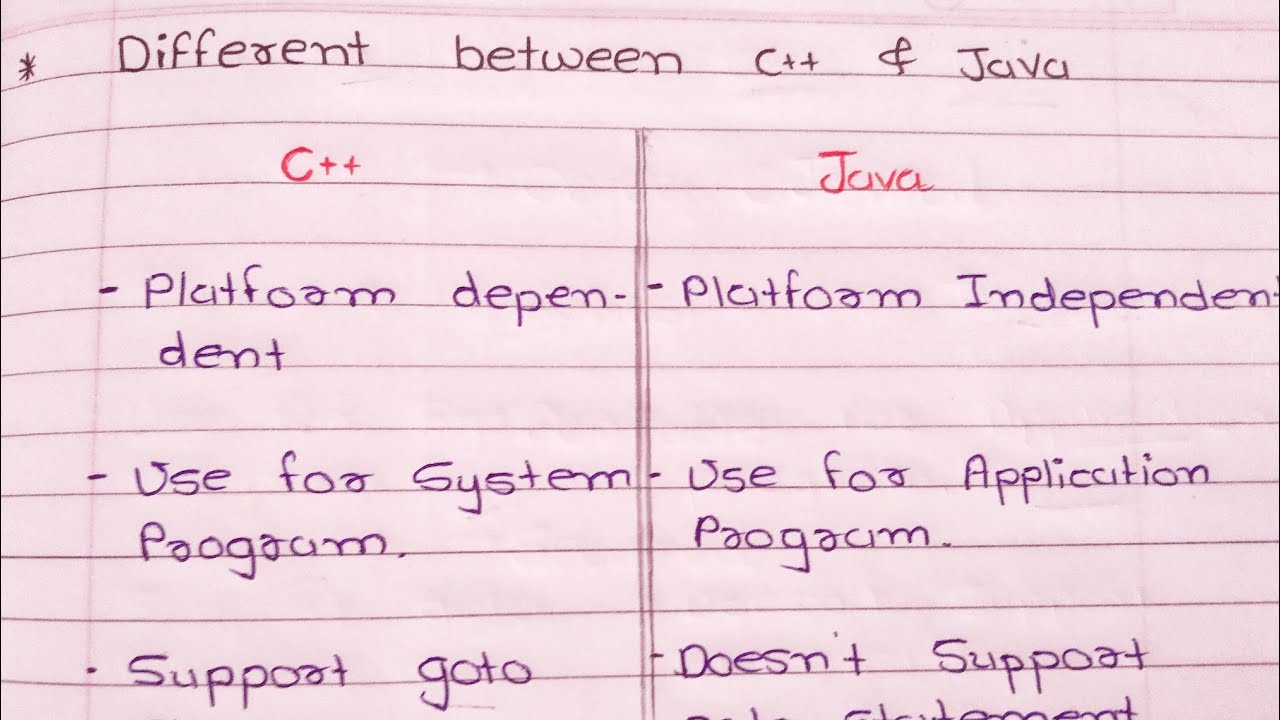 * Different between C++ & Java
C++ Java
- Platform depen- - Platform Independen
dent
- Use for System - Use for Application
Program. Program.
- Support goto - Doesn't Support
statement